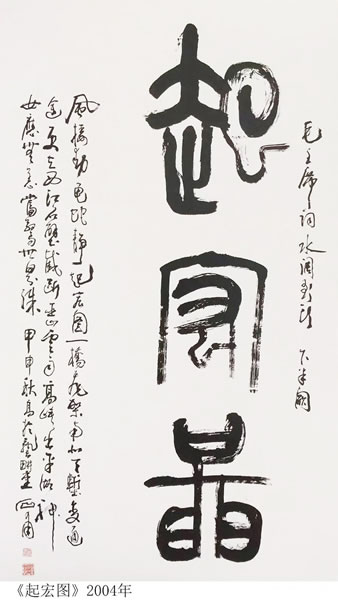 毛主席词水调歌头 下半阕
起宏圖
風樯動龜蛇靜起宏圖一橋飛架南北天塹變通
途更立西江石壁截斷巫山雲雨高峽出平湖神
女應無恙當驚世界殊 甲申秋
《起宏图》2004年